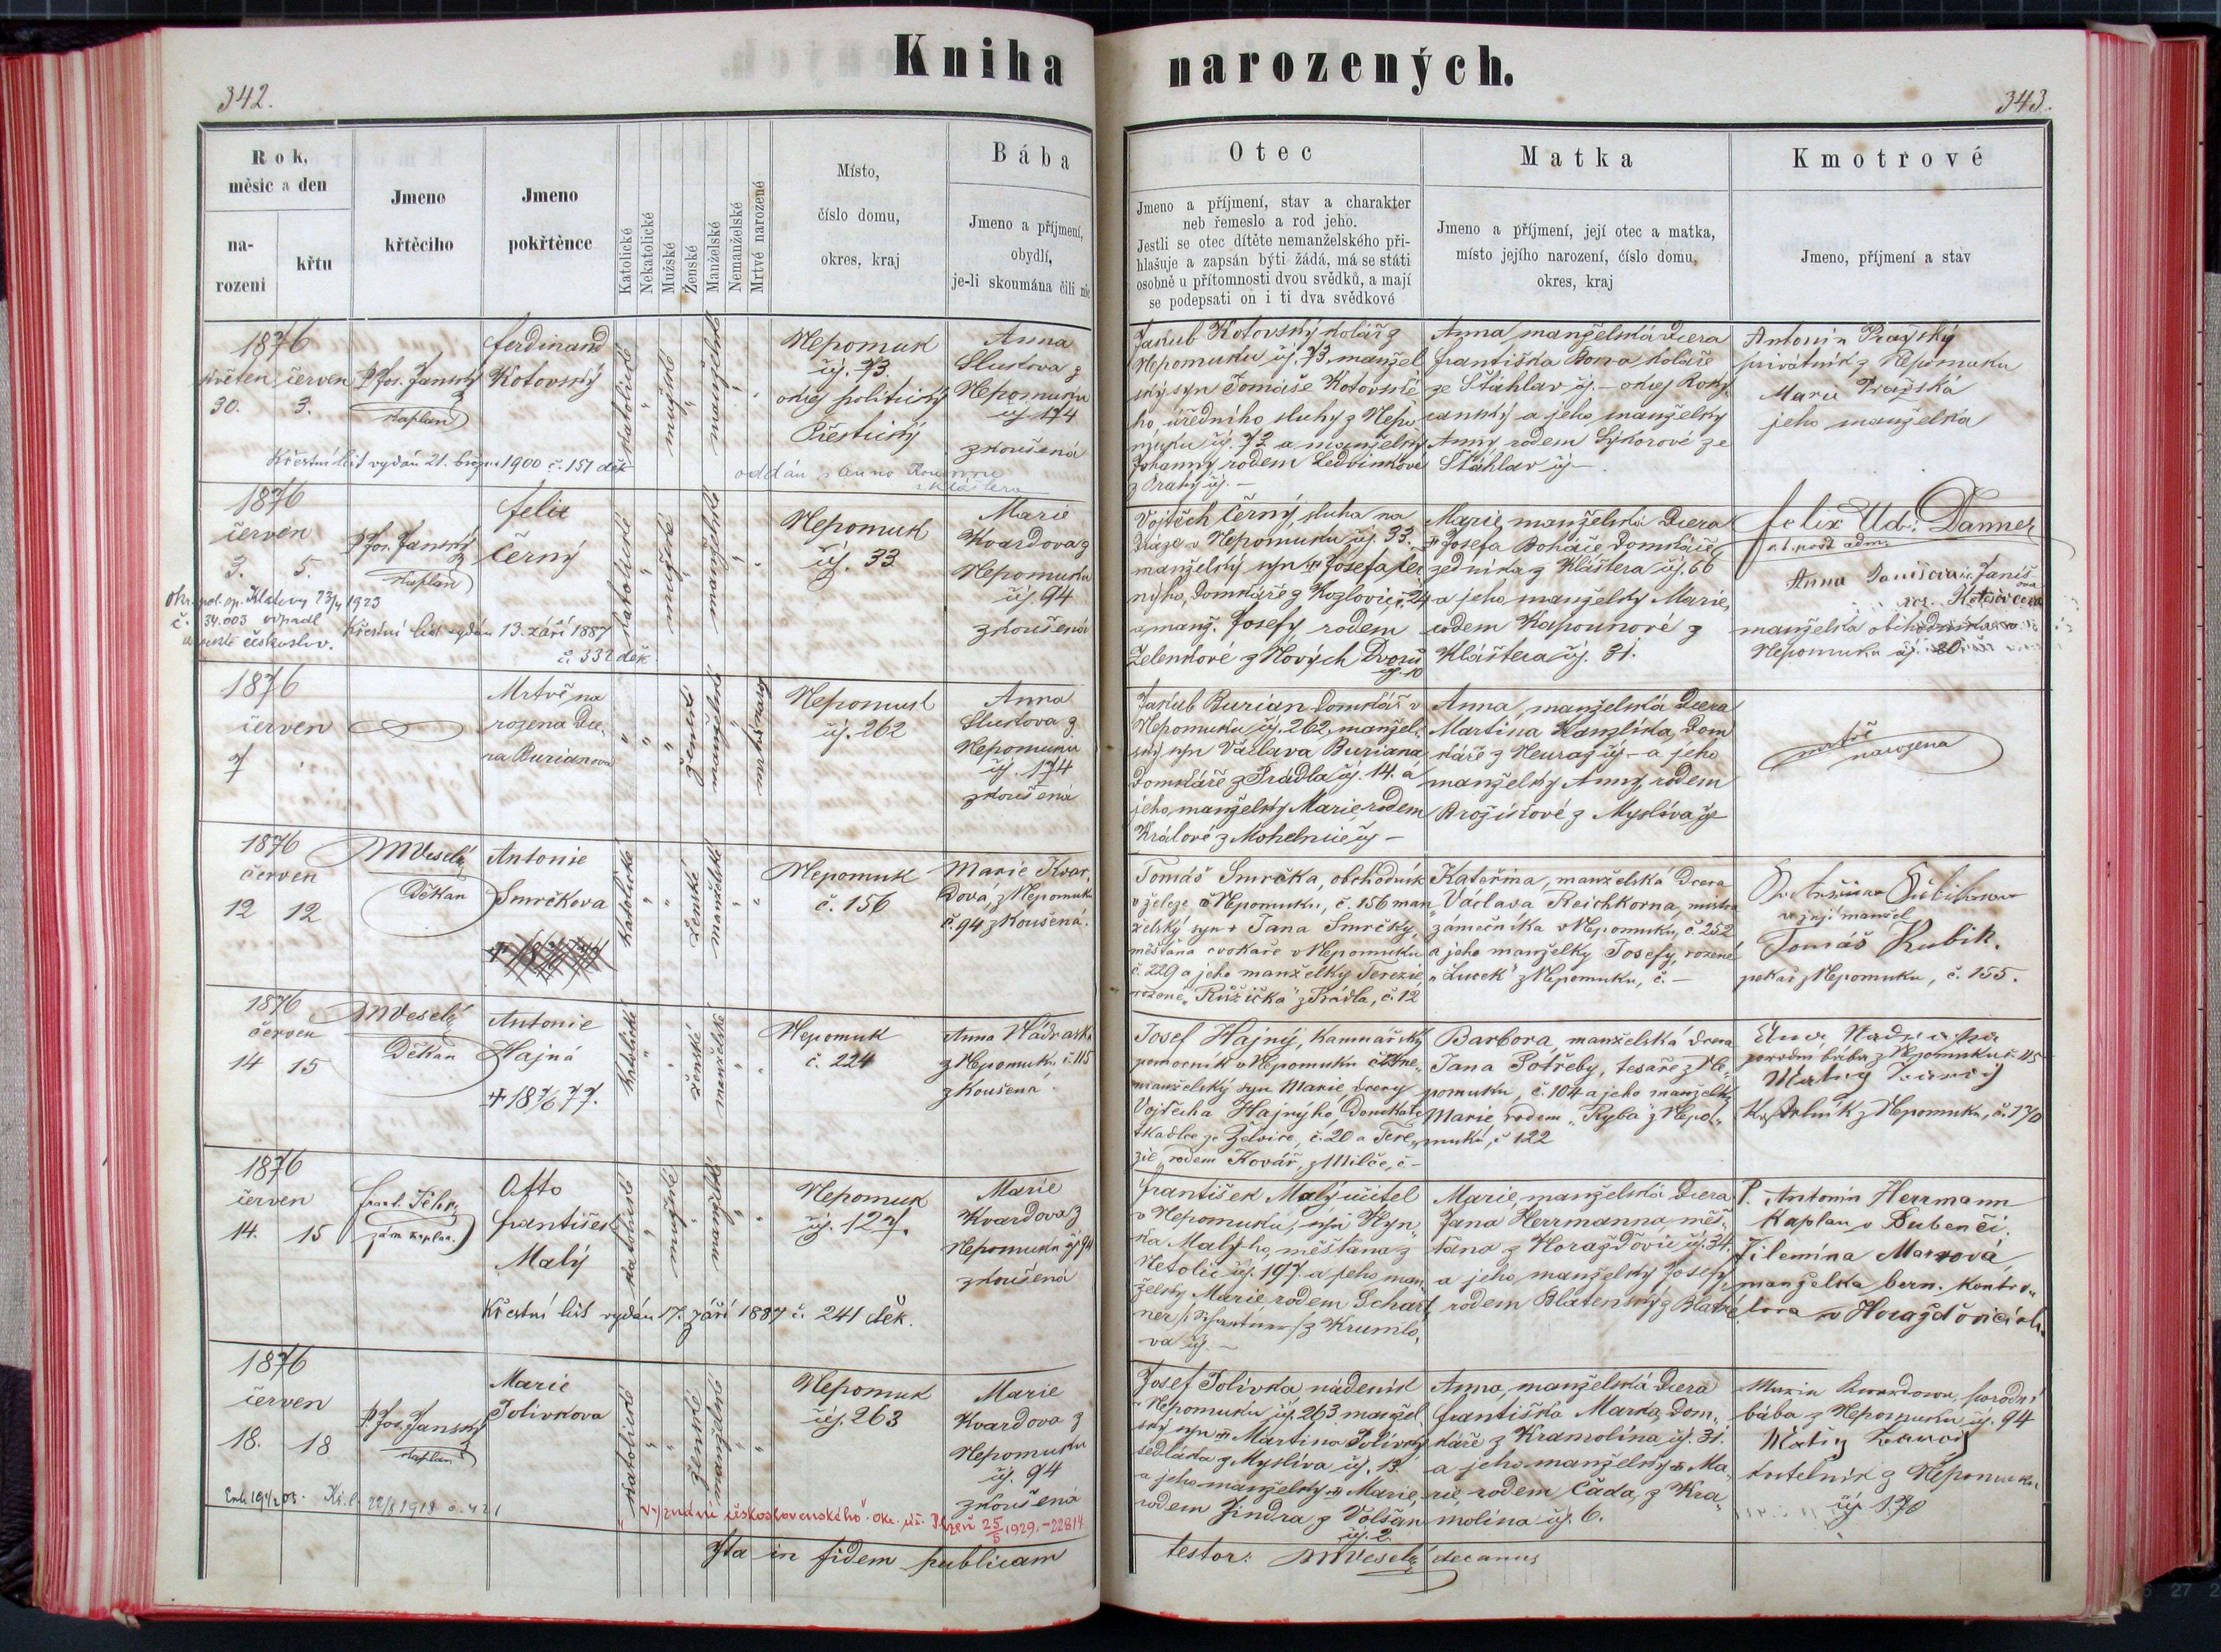 Kniha narozených.
342.
343.
Rok,
měsíc a den
na-
rození
křtu
Jmeno
křtěcího
Jmeno
pokřtěnce
Katolické
Nekatolické
Mužské
Ženské
Manželské
Nemanželské
Mrtvé narozené
Místo,
číslo domu,
okres, kraj
Bába
Jmeno a příjmení,
obydlí,
je-li skoumána čili nic
Otec
Jmeno a příjmení, stav a charakter
neb řemeslo a rod jeho.
Jestli se otec dítěte nemanželského při-
hlašuje a zapsán býti žádá, má se státi
osobně u přítomnosti dvou svědků, a mají
se podepsati on i ti dva svědkové
Matka
Jmeno a příjmení, její otec a matka,
místo jejího narození, číslo domu,
okres, kraj
Kmotrové
Jmeno, příjmení a stav
1876
květen červen
30. 3.
P. Jos. Janský
kaplan
Ferdinand
Kotovský
katolické
mužské
manželské
Nepomuk
čj. 73.
okrej politický
Přestický
Anna
Slustova z
Nepomuku
čj 174
zkoušená
Křestní list vydán 21. března 1900 č. 151 děk
oddán s Annou
z Kláštera
Jakub Kotovský kolář z
Nepomuku čj. 73. manžel
ský syn Tomáše Kotovské
ho, úředního sluhy z Nepo
muku čj. 72 a manželky
Johanny rodem Ledvinkové
z Prahy čj. –
Anna manželská dcera
Františka Born koláře
ze Štáhlav čj. – okrej Roky
canský a jeho manželky
Anny rodem Sýkorové ze
Štáhlav čj –
Antonín Pražský
privátník z Nepomuku
Marie Pražská
jeho manželka
1876
červen
3. 5.
P. Jos. Janský
kaplan
Felix
Černý
katolické
mužské
manželské
Nepomuk
čj. 33
Marie
Kvardova z
Nepomuku
čj. 94
zkoušená
Okr. pol. sp. Klatovy 23/4 1923
č. 34.003
českoslov.
Křestní list vydán 13. září 1887
č. 332 děk.
Vojtěch Černý, sluha na
dráze v Nepomuku čj. 33.
manželský syn † Josefa Čer
nýho, domkáře z Kozlovic č. 24
a manž. Josefy rodem
Zelenkové z Nových Dvorů
čj. 10
Marie, manželská dcera
† Josefa Boháče domkáře
zedníka z Kláštera čj. 66
a jeho manželky Marie,
rodem Kapounové z
Kláštera čj. 31.
Felix Danner
Anna
manželka obchodníka v
Nepomuku čj. 20
1876
červen
7
Mrtvě na
rozena dce-
ra Burianova
ženské
manželské
mrtvě naroz
Nepomuk
čj. 262
Anna
Slustova z
Nepomuku
čj. 174
zkoušená
Jakub Burian domkář v
Nepomuku čj. 262, manžel-
ský syn Václava Buriana
domkáře z Prádla čj. 14. a
jeho manželky Marie, rodem
Králové z Mohelnice čj –
Anna, manželská dcera
Martina Kanzlíka, dom
káře z Neuraz čj – a jeho
manželky Anny, rodem
Brožíkové z Myslíva čj
mrtvě
narozena
1876
červen
12 12
MVeselý
Děkan
Antonie
Smrčkova
katolické
ženské
manželské
Nepomuk
č. 156
Marie Kvar-
dová, z Nepomuku
č. 94 zkoušená.
Tomáš Smrčka, obchodník
v železe v Nepomuku, č. 156 man
želský syn † Jana Smrčky,
měšťana cvokaře v Nepomuku
č. 229 a jeho manželky Terezie
rozené „Růžička" z Prádla, č. 12
Kateřina, manželská dcera
Václava Reichkorna, mistra
zámečníka v Nepomuku, č. 252
a jeho manželky Josefy, rozené
„Lucek" z Nepomuku, č. –
a její manžel
Tomáš Kubik.
pekař z Nepomuku, č. 155.
1876
červen
14 15
MVeselý
Děkan
Antonie
Hajná
katolické
ženské
manželské
Nepomuk
č. 224
Anna Nádraská
z Nepomuku č. 115
zkoušená.
Josef Hajný, kamnářský
pomocník v Nepomuku
manželský syn Marie, dcery
Vojtěcha Hajnýho, domkáře
tkadlce ze Želvice, č. 20 a Tere„
zie, rodem Kovář, z Milče, č –
Barbora, manželská dcera
Jana Potřeby, tesaře z Ne„
pomuku, č. 104 a jeho manželky
Marie, rodem „Ryba" z Nepo„
muku, č 122
porodní bába z Nepomuku č. 115
Kostelník z Nepomuku, č. 170
1876
červen
14. 15
Frant.
zám. kaplan.
Otto
František
Malý
katolické
mužské
manželské
Nepomuk
čj. 127.
Marie
Kvardova z
Nepomuku čj 94
zkoušená
Křestní list vydán 17. září 1887 č. 241 děk.
František Malý učitel
v Nepomuku, syn Hyn„
ka Malýho, měšťana z
Netolic čj. 197. a jeho man
želky Marie, rodem Schart
ner z Krumlo„
va čj. –
Marie, manželská dcera
Jana Herrmanna, měš„
ťana z Horažďovic čj. 34.
a jeho manželky Josefy
rodem Blatenský z Blatné
P. Antonín Herrmann
Kaplan v Bubenči.
Filemína Marxová
manželka bern. kontro„
lora v Horažďovicích.
1876
červen
18. 18
P. Jos. Janský
kaplan
Marie
Polívkova
katolické
ženské
manželské
Nepomuk
čj. 263
Marie
Kvardova z
Nepomuku
čj. 94
zkoušená
22/8 1918 č. 421
vyznání československého". Okr. úř. Plzeň 25/5 1929. – 22814
Josef Polívka nádeník
v Nepomuku čj. 263 manžel
ský syn † Martina Polívky
sedláka z Myslíva čj. 13.
a jeho manželky † Marie,
rodem Jindra z Volšan
čj. 2.
Anna, manželská dcera
Františka Marka, dom„
káře z Kramolína čj. 31.
a jeho manželky † Ma„
rie, rodem Čada, z Kra„
molína čj. 6.
Marie Kvardova, porodní
bába z Nepomuku čj. 94
kostelník z Nepomuku
čj. 170
Ita in fidem publicam
testor: MVeselý decanus